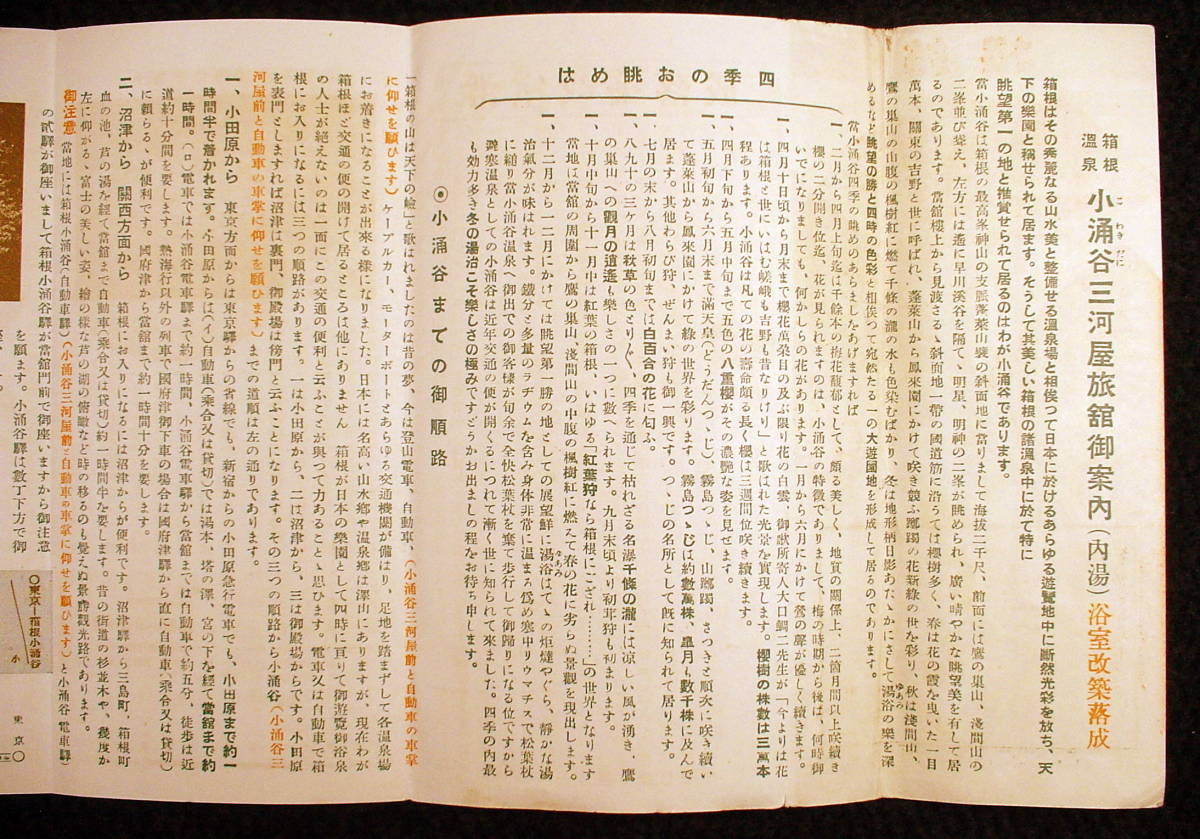 箱根温泉 小涌谷三河屋旅舘御案內（內湯）浴室改築落成
こわきだに
箱根はその秀麗なる山水美と整備せる溫泉場と相俟つて日本に於けるあらゆる遊覽地中に斷然光彩を放ち、天
下の樂園と稱せられて居ます。そうして其美しい箱根の諸溫泉中に於て特に
眺望第一の地と推賞せられて居るのはわが小涌谷であります。
當小涌谷は箱根の最高峯神山の支脈蓬萊山襞の斜面地に當りまして海拔二千尺、前面には鷹の巢山、淺間山の
二峯並び聳え、左方には遙に早川溪谷を隔てゝ明星、明神の二峯が眺められ、廣い晴やかな眺望美を有して居
るのであります。當舘樓上から見渡さるゝ斜面地一帶の國道筋に沿うては櫻樹多く、春は花の霞を曳いた一目
萬本、關東の吉野と世に呼ばれ、蓬萊山から鳳來園にかけて咲き競ふ躑躅の花新綠の世を彩り、秋は淺間山、
鷹の巢山の山腹の楓樹紅に燃て千條の瀧の水も色染むばかり、冬は地形柄日影あたゝかにさして湯浴の樂を深
ゆあみ
めるなど眺望の勝と四時の色彩と相俟つて宛然たる一の大遊園地を形成して居るのであります。
當小涌谷四季の眺めのあらましをあげますれば
四季のお眺めは
一、二月から四月上旬迄は千餘本の梅花馥郁として、頗る美しく、地質の關係上、二箇月間以上咲續き
櫻の二分開き位迄、花が見られますのは、小涌谷の特徵でありまして、梅の時期から後は、何時御
いでになりましても、何かしらの花があります。一月から六月にかけて鶯の聲が優しく續きます。
一、四月十日頃から月末まで櫻花萬朶目の及ぶ限り花の白雲、御歌所寄人大口鯛二先生が「今よりは花
は箱根と世にいはむ嵯峨も吉野も昔なりけり」と歌はれた光景を實現します。櫻樹の株數は三萬本
程あります。小涌谷は凡ての花の壽命頗る長く櫻は三週間位咲き續きます。
一、四月下旬から五月中旬まで五色の八重櫻がその濃艷な姿を見せます。
一、五月初旬から六月末まで滿天皇（どうだんつゝじ）、霧島つゝじ、山躑躅、さつきと順次に咲き續い
て蓬萊山から鳳來園にかけて綠の世界を彩ります。霧島つゝじは約數萬株、皐月も數千株に及んで
居ます。其他わらび狩、ぜんまい狩も御一興です。つゝじの名所として旣に知られて居ります。
一、七月の末から八月初旬までは白百合の花に匂ふ。
一、八九十の三ケ月は秋草の色とりどり、四季を通じて枯れざる名瀑千條の瀧には涼しい風が湧き、鷹
の巢山への觀月の逍遙も樂しさの一つに數へられます。九月末頃より初茸狩も初まります。
一、十月中旬から十一月中は紅葉の箱根、いはゆる「紅葉狩なら箱根にござれ………」の世界となります
當地には當舘の周圍から鷹の巢山、淺間山の中腹の楓樹紅に燃えて春の花に劣らぬ景觀を現出します。
一、十二月から一二月にかけては眺望第一勝の地としての展望鮮に湯浴はてゝの炬燵やぐら、靜かな湯
ゆあみ
治氣分が味はれます。鐵分と多量のラヂウムを含み身体非常に温まる爲め寒中リウマチスで松葉杖
に縋り當小涌谷温泉へ御出での御客樣が旬余で全快松葉杖を棄て步行して御歸りになる位ですから
避寒温泉としての小涌谷は近年交通の便が開くるにつれて漸く世に知られて來ました。四季の内最
も効力多き冬の湯治こそ樂しさの極みです、どうかお出ましの程をお待ち申します。
◉小涌谷までの御順路
「箱根の山は天下の嶮」と歌はれましたのは昔の夢、今は登山電車、自動車、（小涌谷三河屋前と自動車の車掌
に仰せを願ひます）ケーブルカー、モーターボートとあらゆる交通機關が備はり、足地を踏まずして各溫泉塲
にお着きになることが出來る樣になりました。日本には名高い山水鄕や溫泉鄕は澤山にありますが、現在わが
箱根ほど交通の便の開けて居るところは他にありません 箱根が日本の樂園として四時に亘りて御遊覽御浴泉
の人士が絕えないのは一面にこの交通の便利と云ふことが與つて力あることゝ思ひます。電車又は自動車で箱
根にお入りになるには三つの順路があります。一は小田原から、二は沼津から、三は御殿場からです。小田原
を表門としますれば沼津は裏門、御殿場は傍門と云ふことになります。その三つの順路から小涌谷（小涌谷三
河屋前と自動車の車掌に仰せを願ひます）までの道順は左の通りであります。
一、小田原から 東京方面からは東京驛からの省線でも、新宿からの小田原急行電車でも、小田原まで約一
時間半で着かれます。小田原からは（イ）自動車（乘合又は貸切）では湯本、塔の澤、宮の下を經て當舘まで約
一時間。（ロ）電車では小涌谷電車驛まで約一時間、小涌谷電車驛から當舘までは自動車で約五分、徒步は近
道約十分間を要します。熱海行以外の列車で國府津御下車の場合は國府津驛から直に自動車（乘合又は貸切）
に賴らるゝが便利です。國府津から當舘まで約一時間十分を要します。
二、沼津から 關西方面から 箱根にお入りになるには沼津からが便利です。沼津驛から三島町、箱根町
血の池、芦の湯を經て當舘まで自動車（乘合又は貸切）約一時間半を要します。昔の街道の杉並木や、幾度か
左に仰がるゝ富士の美しい姿、繪の樣な芦の湖の俯瞰など時の移るのも覺えぬ景勝觀光路であります。
御注意 當地には箱根小涌谷（自動車驛）（小涌谷三河屋前と自動車の車掌に仰せを願ひます）と小涌谷（電車驛）
の貳驛が御座いまして箱根小涌谷驛が當舘門前で御座いますから御注意
を願ます。小涌谷驛は數丁下方で御
○東京ー箱根小涌谷
東京○
小